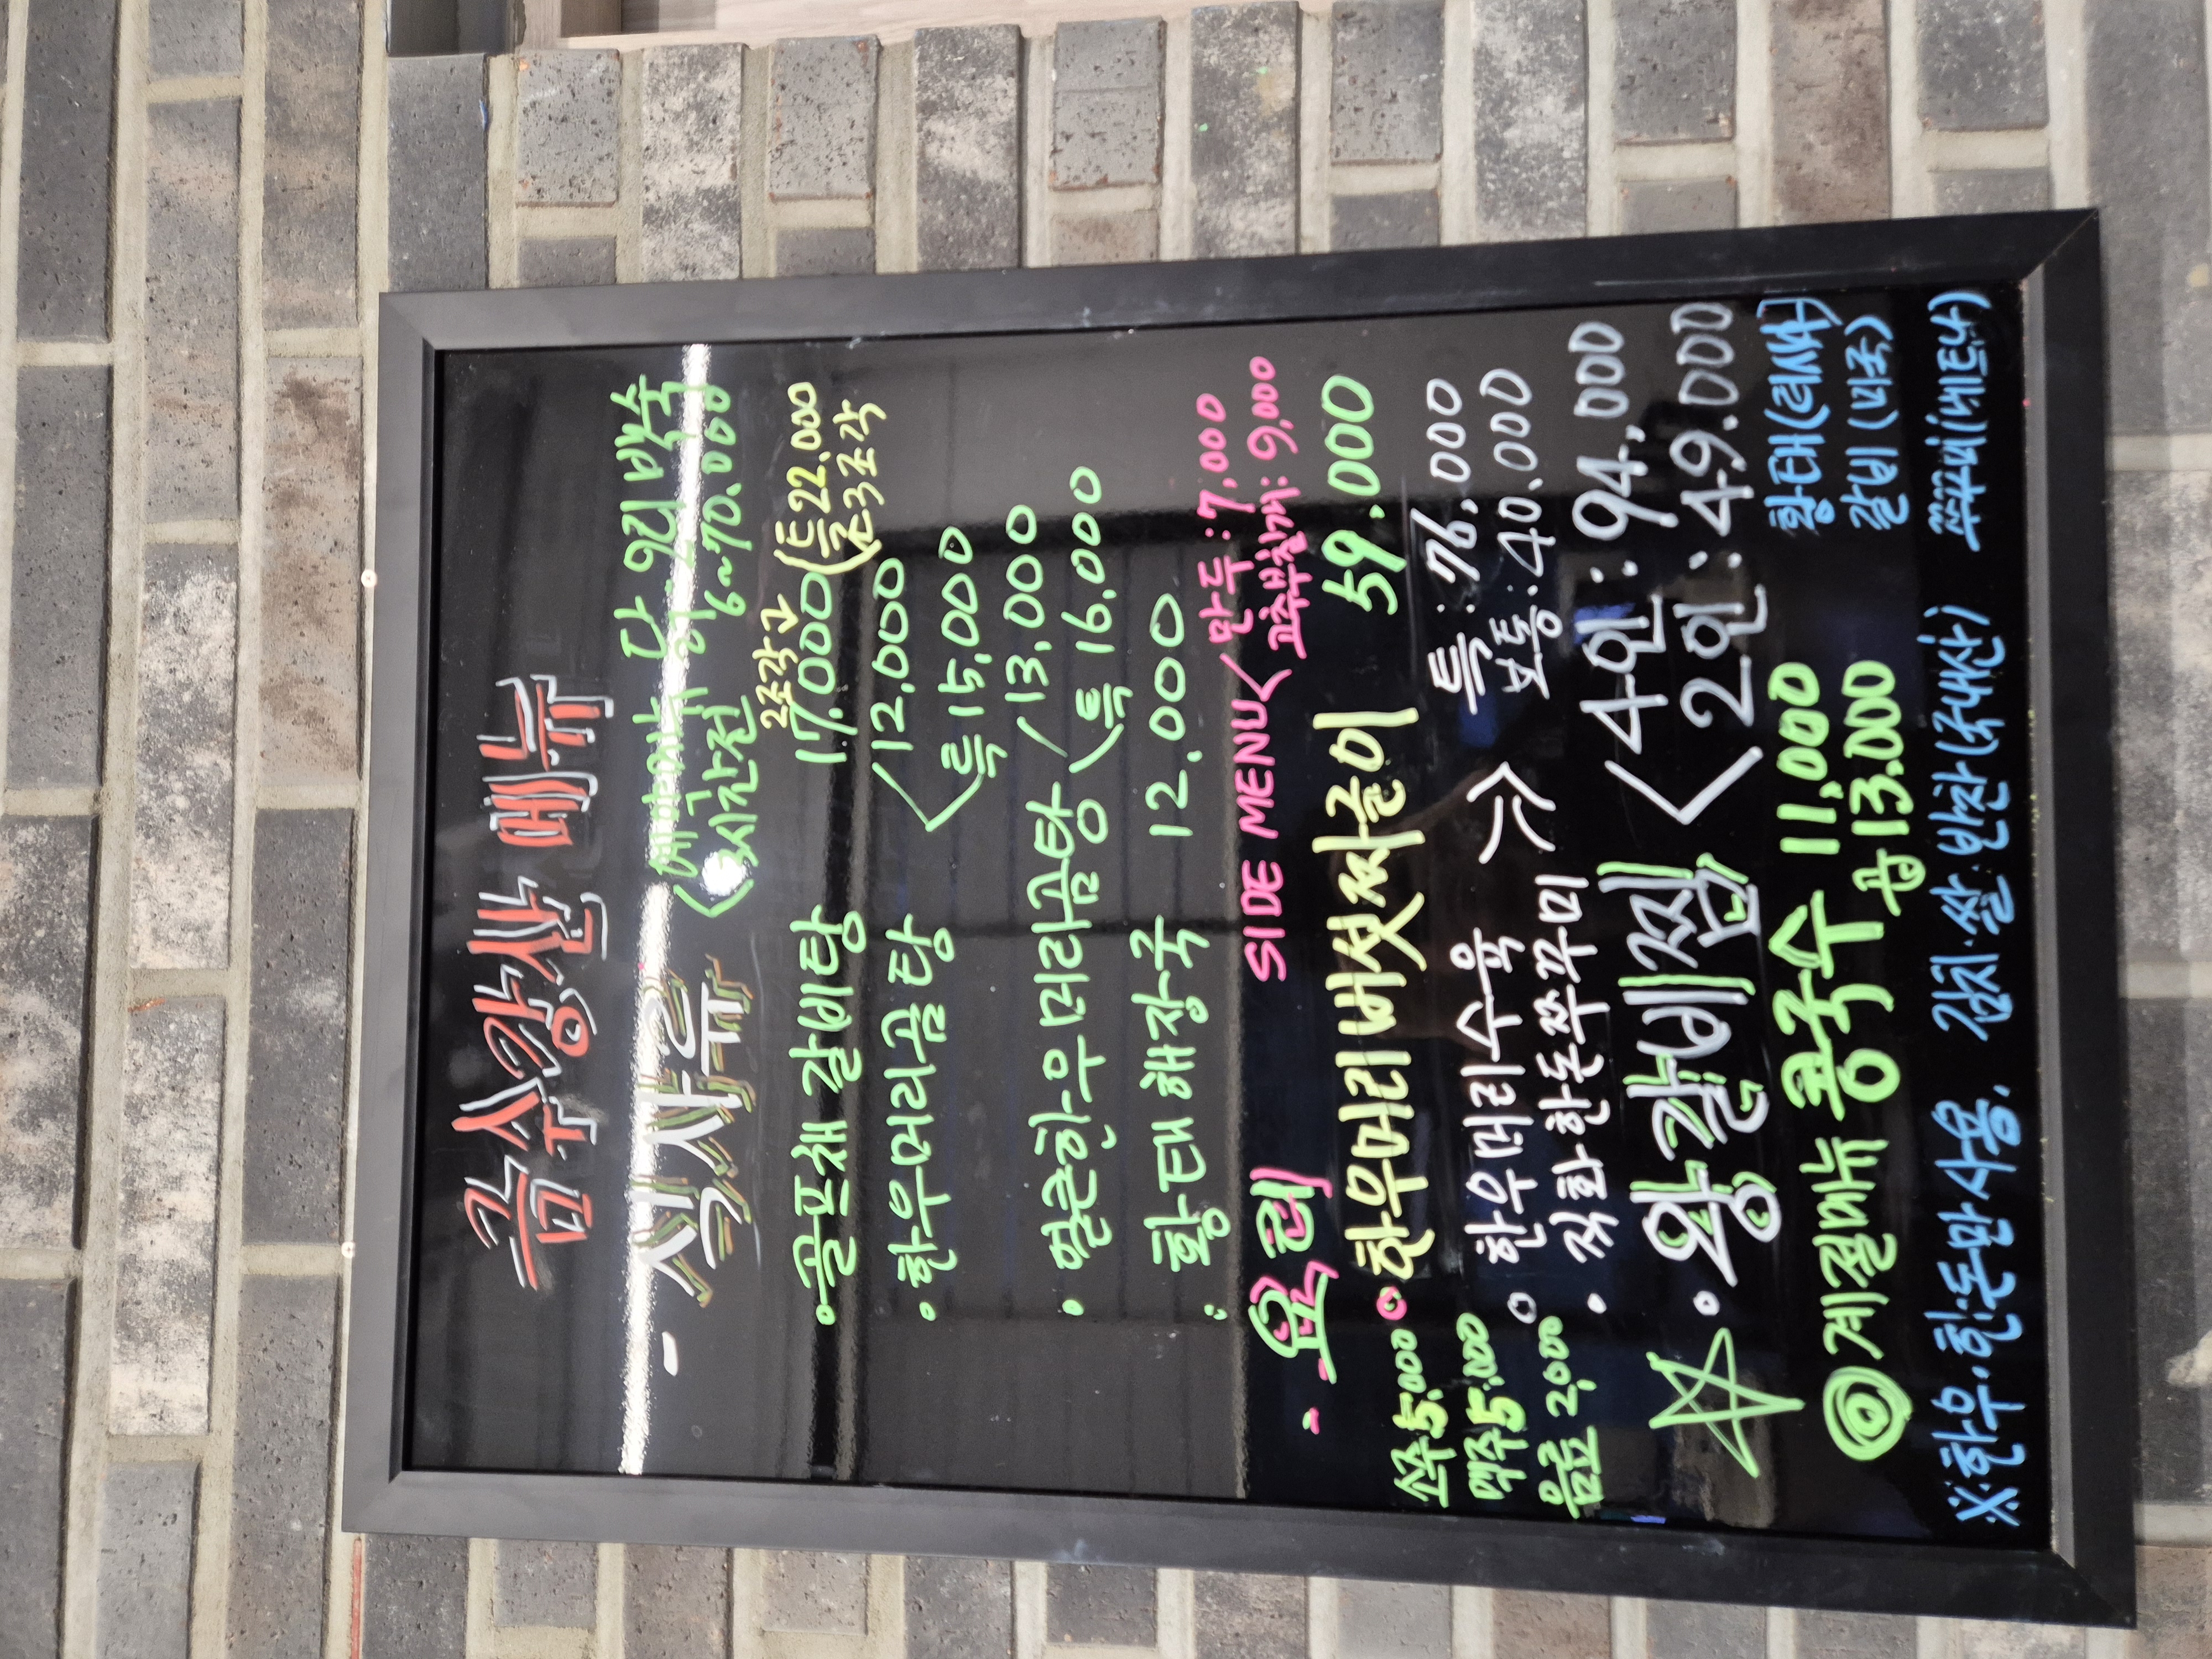 금수강산 메뉴
- 식사류
<예약시 닭, 오리백숙
3시간전 6~70.000
2조각
• 골프채 갈비탕 17.000 (특22.000
(큰3조각
• 한우머리곰탕 <12.000
특 15,000
• 얼큰한우머리곰탕 13,000
특 16.000
• 황태해장국 12.000
- 요리 SIDE MENU < 만두: 7,000
고추부침개: 9,000
• 한우머리버섯짜글이 59.000
소주5.000
맥주5.000
음료 2,000
• 한우머리수육 >> 특: 76,000
• 직화한돈쭈꾸미 보통: 40.000
☆ • 왕갈비찜 < 4인: 94,000
2인: 49.000
◎ 계절메뉴 콩국수 11,000
곱 13.000
황태(러시아)
갈비(미국)
※ 한우.한돈만 사용. 김치.쌀.반찬(국내산) 쭈꾸미(베트남)